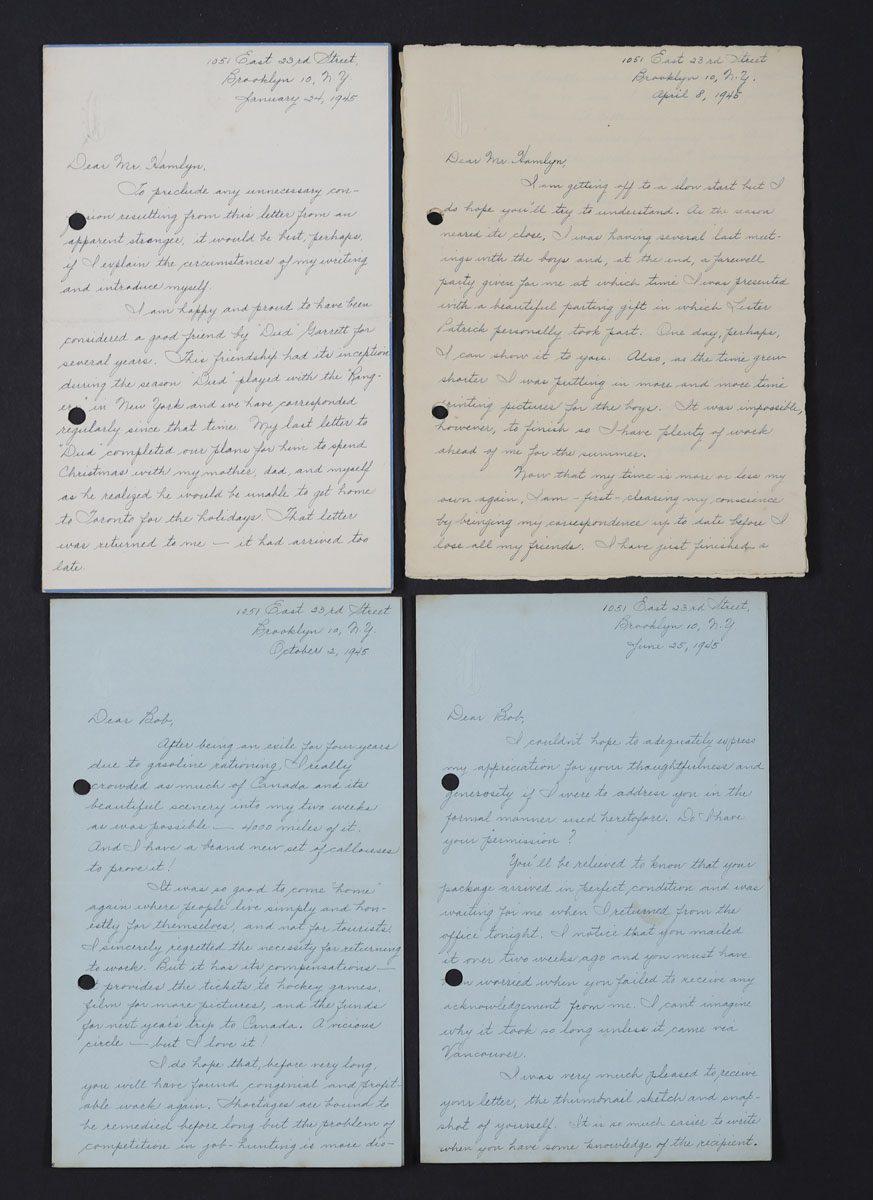 1051 East 23rd Street,
Brooklyn 10, N.Y.
January 24, 1945
Dear Mr. Hamlyn,
To preclude any unnecessary con-
sion resulting from this letter from an
apparent stranger, it would be best, perhaps,
if I explain the circumstances of my writing
and introduce myself.
I am happy and proud to have been
considered a good friend by "Dud" Garrett for
several years. This friendship had its inception
during the season "Dud" played with the "Rang-
ers" in New York and we have corresponded
regularly since that time. My last letter to
"Dud" completed our plans for him to spend
Christmas with my mother, dad, and myself
as he realized he would be unable to get home
to Toronto for the holidays. That letter
was returned to me — it had arrived too
late.
1051 East 23rd Street
Brooklyn 10, N.Y.
April 8, 1945
Dear Mr. Hamlyn,
I am getting off to a slow start but I
do hope you'll try to understand. As the season
neared its close, I was having several last meet-
ings with the boys and, at the end, a farewell
party given for me at which time I was presented
with a beautiful parting gift in which Lester
Patrick personally took part. One day, perhaps,
I can show it to you. Also, as the time grew
shorter I was putting in more and more time
printing pictures for the boys. It was impossible,
however, to finish so I have plenty of work
ahead of me for the summer.
Now that my time is more or less my
own again, I am - first - clearing my conscience
by bringing my correspondence up to date before I
lose all my friends. I have just finished a
1051 East 23rd Street
Brooklyn 10, N.Y.
October 2, 1945
Dear Bob,
After being an exile for four years
due to gasoline rationing, I really
crowded as much of Canada and its
beautiful scenery into my two weeks
as was possible — 4000 miles of it.
And I have a brand new set of callouses
to prove it!
It was so good to come "home"
again where people live simply and hon-
estly for themselves, and not for tourists.
I sincerely regretted the necessity for returning
to work. But it has its compensations —
provides the tickets to hockey games,
film for more pictures, and the funds
for next year's trip to Canada. A vicious
circle — but I love it!
I do hope that, before very long,
you will have found congenial and profit-
able work again. Shortages are bound to
be remedied before long but the problem of
competition in job-hunting is more dis-
1051 East 23rd Street,
Brooklyn 10, N.Y.
June 25, 1945
Dear Bob,
I couldn't hope to adequately express
my appreciation for your thoughtfulness and
generosity if I were to address you in the
formal manner used heretofore. Do I have
your permission?
You'll be relieved to know that your
package arrived in perfect condition and was
waiting for me when I returned from the
office tonight. I notice that you mailed
it over two weeks ago and you must have
worried when you failed to receive any
acknowledgement from me. I can't imagine
why it took so long unless it came via
Vancouver.
I was very much pleased to receive
your letter, the thumbnail sketch and snap-
shot of yourself. It is so much easier to write
when you have some knowledge of the recipient.